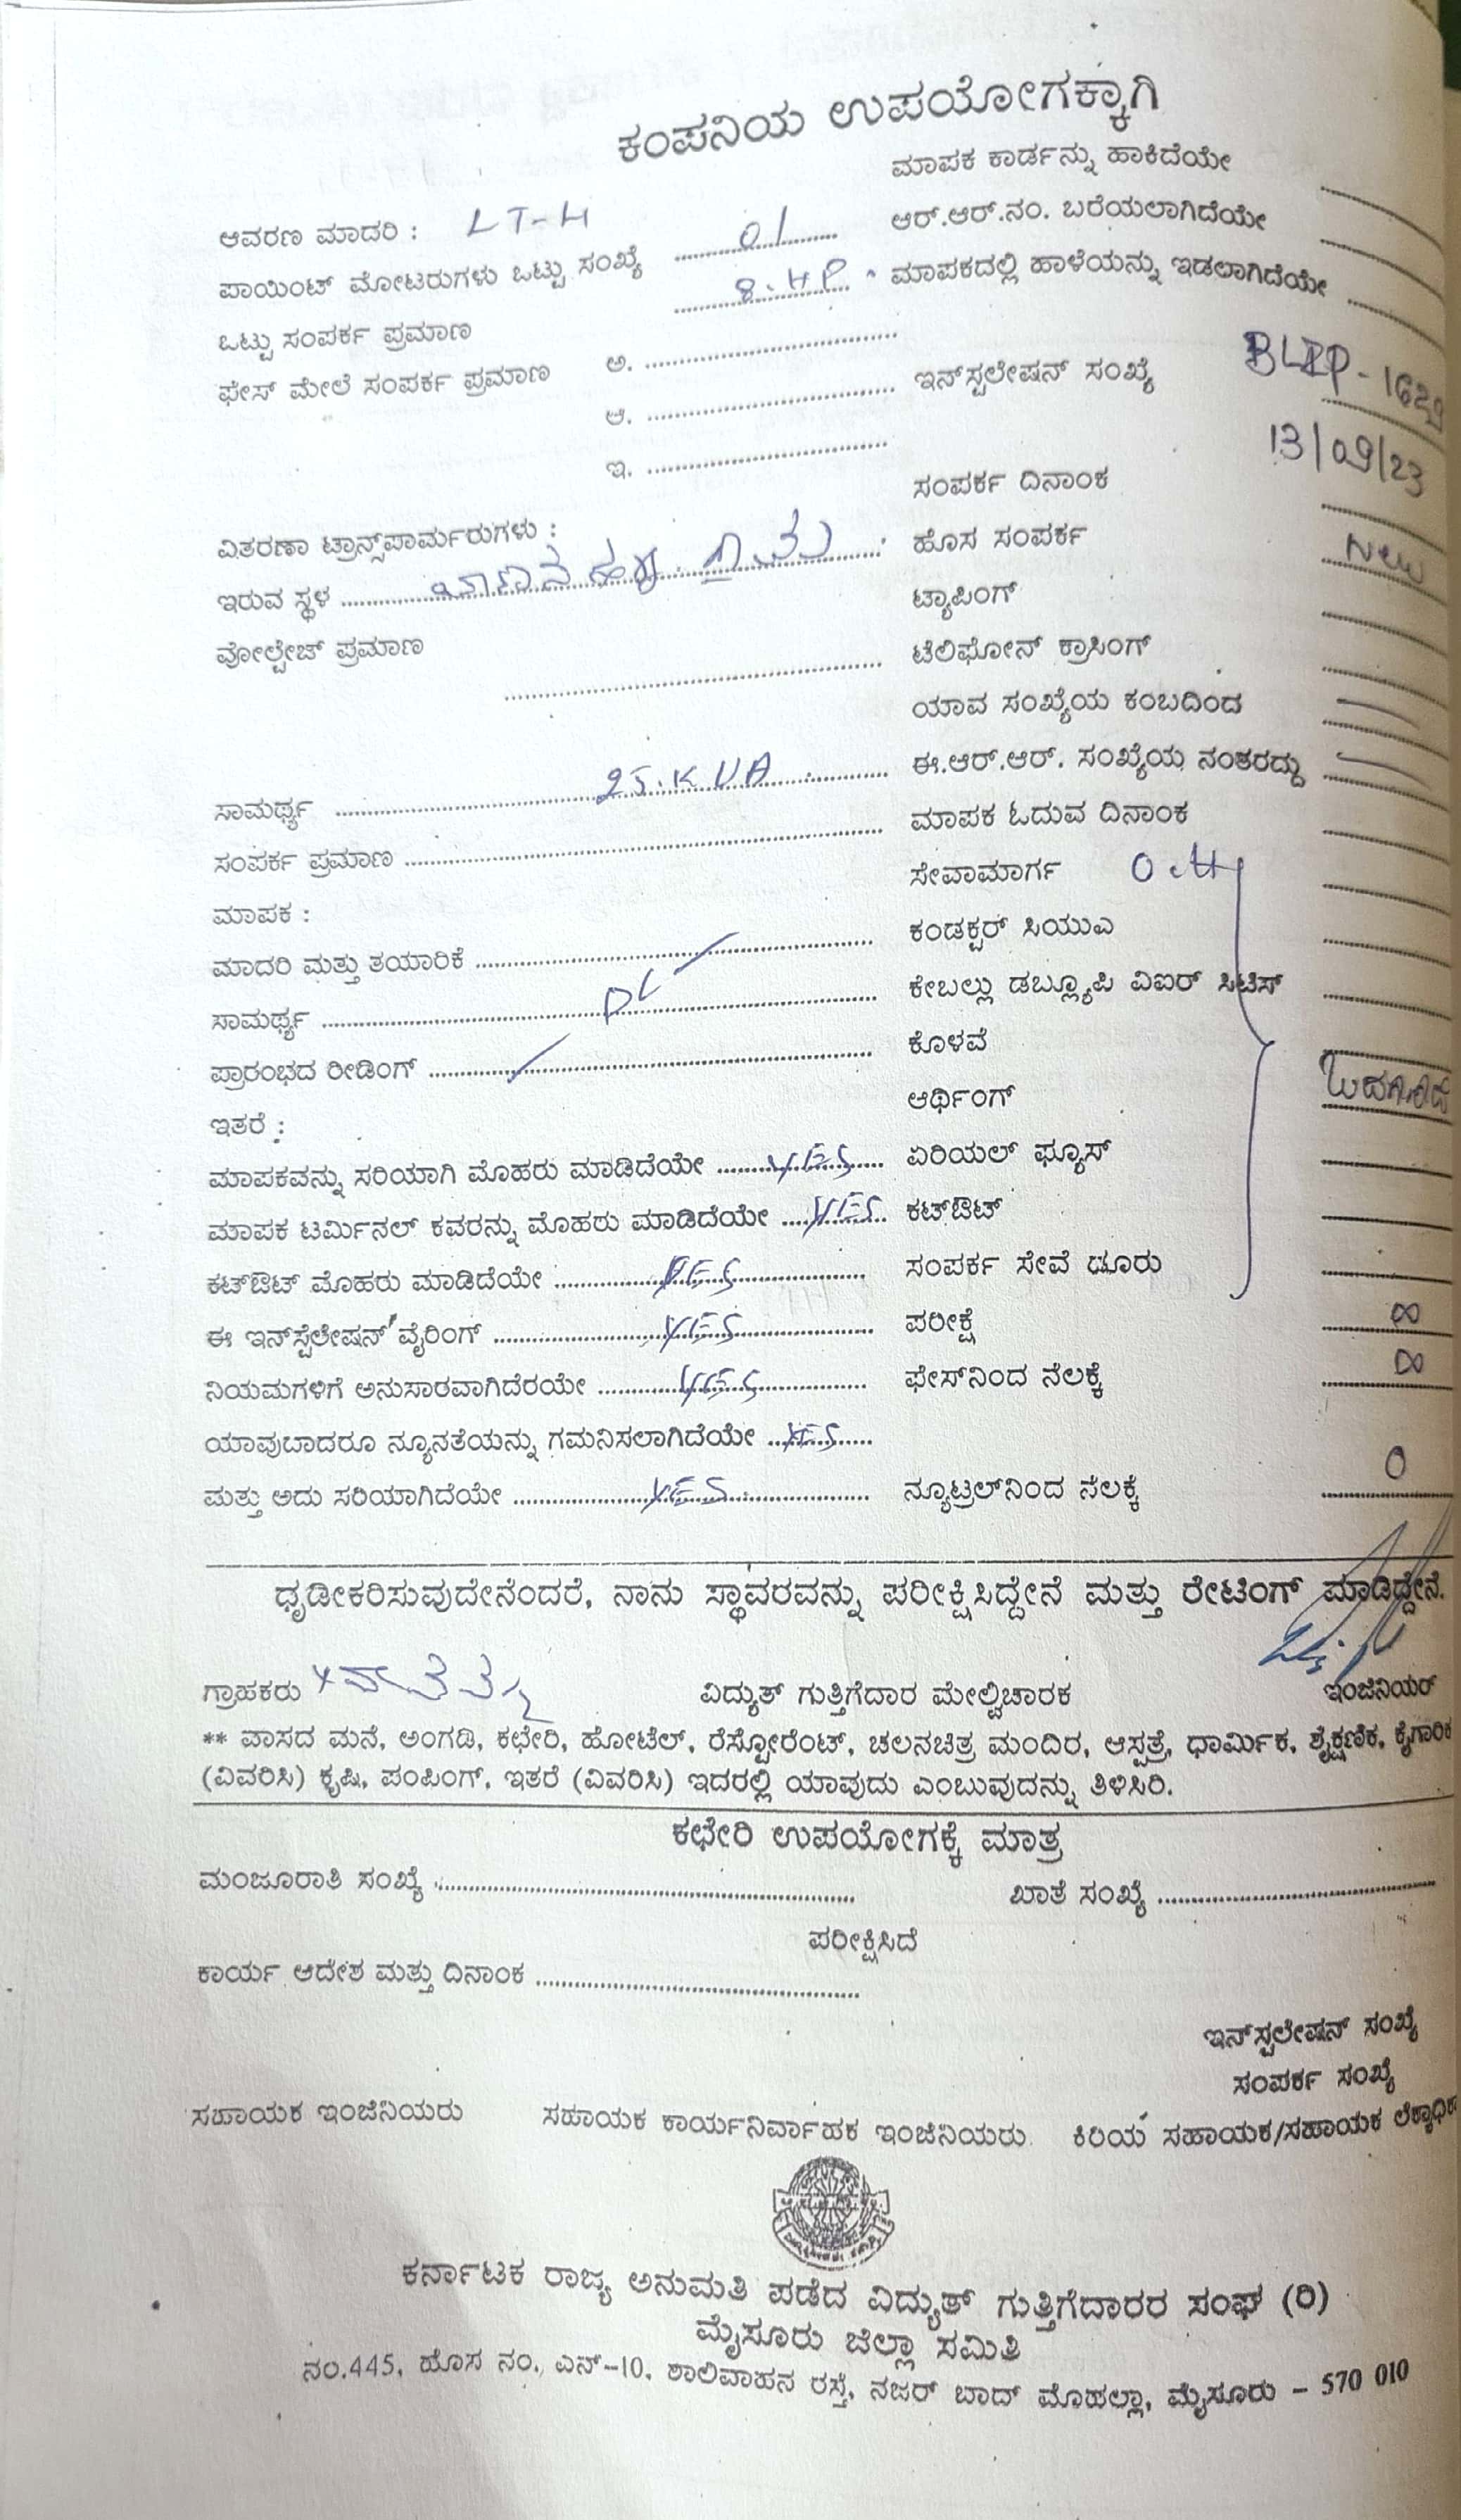 ಕಂಪನಿಯ ಉಪಯೋಗಕ್ಕಾಗಿ
ಆವರಣ ಮಾದರಿ : LT-4
ಪಾಯಿಂಟ್ ಮೋಟರುಗಳು ಒಟ್ಟು ಸಂಖ್ಯೆ ........ 01 ........
ಒಟ್ಟು ಸಂಪರ್ಕ ಪ್ರಮಾಣ ........ 8.HP ........
ಫೇಸ್ ಮೇಲೆ ಸಂಪರ್ಕ ಪ್ರಮಾಣ ಅ. ........
ಆ. ........
ಇ. ........
ವಿತರಣಾ ಟ್ರಾನ್ಸ್‌ಪಾರ್ಮರುಗಳು :
ಇರುವ ಸ್ಥಳ ........
ವೋಲ್ಟೇಜ್ ಪ್ರಮಾಣ ........
ಸಾಮರ್ಥ್ಯ ........ 25.KVA ........
ಸಂಪರ್ಕ ಪ್ರಮಾಣ ........
ಮಾಪಕ :
ಮಾದರಿ ಮತ್ತು ತಯಾರಿಕೆ ........
ಸಾಮರ್ಥ್ಯ ........ DL ........
ಪ್ರಾರಂಭದ ರೀಡಿಂಗ್ ........
ಇತರೆ :
ಮಾಪಕವನ್ನು ಸರಿಯಾಗಿ ಮೊಹರು ಮಾಡಿದೆಯೇ ........ YES ........
ಮಾಪಕ ಟರ್ಮಿನಲ್ ಕವರನ್ನು ಮೊಹರು ಮಾಡಿದೆಯೇ .... YES
ಕಟ್‌ಔಟ್ ಮೊಹರು ಮಾಡಿದೆಯೇ ........ YES ........
ಈ ಇನ್‌ಸ್ಟಲೇಷನ್ ವೈರಿಂಗ್ ........ YES ........
ನಿಯಮಗಳಿಗೆ ಅನುಸಾರವಾಗಿದೆರಯೇ ........ YES ........
ಯಾವುಬಾದರೂ ನ್ಯೂನತೆಯನ್ನು ಗಮನಿಸಲಾಗಿದೆಯೇ .. YES ....
ಮತ್ತು ಅದು ಸರಿಯಾಗಿದೆಯೇ ........ YES ........
ಮಾಪಕ ಕಾರ್ಡನ್ನು ಹಾಕಿದೆಯೇ
ಆರ್.ಆರ್.ನಂ. ಬರೆಯಲಾಗಿದೆಯೇ
ಮಾಪಕದಲ್ಲಿ ಹಾಳೆಯನ್ನು ಇಡಲಾಗಿದೆಯೇ
ಇನ್‌ಸ್ಟಲೇಷನ್ ಸಂಖ್ಯೆ
ಸಂಪರ್ಕ ದಿನಾಂಕ 13/09/23
ಹೊಸ ಸಂಪರ್ಕ New
ಟ್ಯಾಪಿಂಗ್
ಟೆಲಿಫೋನ್ ಕ್ರಾಸಿಂಗ್
ಯಾವ ಸಂಖ್ಯೆಯ ಕಂಬದಿಂದ —
ಈ.ಆರ್.ಆರ್. ಸಂಖ್ಯೆಯ ನಂತರದ್ದು —
ಮಾಪಕ ಓದುವ ದಿನಾಂಕ
ಸೇವಾಮಾರ್ಗ
ಕಂಡಕ್ಟರ್ ಸಿಯುಎ
ಕೇಬಲ್ಲು ಡಬ್ಲ್ಯೂಪಿ ವಿಐರ್ ಸಿಟಿಸ್
ಕೊಳವೆ
ಆರ್ಥಿಂಗ್
ಏರಿಯಲ್ ಫ್ಯೂಸ್
ಕಟ್‌ಔಟ್
ಸಂಪರ್ಕ ಸೇವೆ ಡೂರು
ಪರೀಕ್ಷೆ ∞
ಫೇಸ್‌ನಿಂದ ನೆಲಕ್ಕೆ ∞
ನ್ಯೂಟ್ರಲ್‌ನಿಂದ ನೆಲಕ್ಕೆ 0
ಧೃಡೀಕರಿಸುವುದೇನೆಂದರೆ, ನಾನು ಸ್ಥಾವರವನ್ನು ಪರೀಕ್ಷಿಸಿದ್ದೇನೆ ಮತ್ತು ರೇಟಿಂಗ್ ಮಾಡಿದ್ದೇನೆ.
ಗ್ರಾಹಕರು ವಿದ್ಯುತ್ ಗುತ್ತಿಗೆದಾರ ಮೇಲ್ವಿಚಾರಕ ಇಂಜಿನಿಯರ್
** ವಾಸದ ಮನೆ, ಅಂಗಡಿ, ಕಛೇರಿ, ಹೋಟೆಲ್, ರೆಸ್ಟೋರೆಂಟ್, ಚಲನಚಿತ್ರ ಮಂದಿರ, ಆಸ್ಪತ್ರೆ, ಧಾರ್ಮಿಕ, ಶೈಕ್ಷಣಿಕ, ಕೈಗಾರಿಕ
(ವಿವರಿಸಿ) ಕೃಷಿ, ಪಂಪಿಂಗ್, ಇತರೆ (ವಿವರಿಸಿ) ಇದರಲ್ಲಿ ಯಾವುದು ಎಂಬುವುದನ್ನು ತಿಳಿಸಿರಿ.
ಕಛೇರಿ ಉಪಯೋಗಕ್ಕೆ ಮಾತ್ರ
ಮಂಜೂರಾತಿ ಸಂಖ್ಯೆ ........ ಖಾತೆ ಸಂಖ್ಯೆ ........
ಪರೀಕ್ಷಿಸಿದೆ
ಕಾರ್ಯ ಆದೇಶ ಮತ್ತು ದಿನಾಂಕ ........
ಇನ್‌ಸ್ಟಲೇಷನ್ ಸಂಖ್ಯೆ
ಸಂಪರ್ಕ ಸಂಖ್ಯೆ
ಸಹಾಯಕ ಇಂಜಿನಿಯರು ಸಹಾಯಕ ಕಾರ್ಯನಿರ್ವಾಹಕ ಇಂಜಿನಿಯರು ಕಿರಿಯ ಸಹಾಯಕ/ಸಹಾಯಕ
ಕರ್ನಾಟಕ ರಾಜ್ಯ ಅನುಮತಿ ಪಡೆದ ವಿದ್ಯುತ್ ಗುತ್ತಿಗೆದಾರರ ಸಂಘ (ರಿ)
ಮೈಸೂರು ಜಿಲ್ಲಾ ಸಮಿತಿ
ನಂ.445, ಹೊಸ ನಂ., ಎನ್-10, ಶಾಲಿವಾಹನ ರಸ್ತೆ, ನಜರ್ ಬಾದ್ ಮೊಹಲ್ಲಾ, ಮೈಸೂರು – 570 010